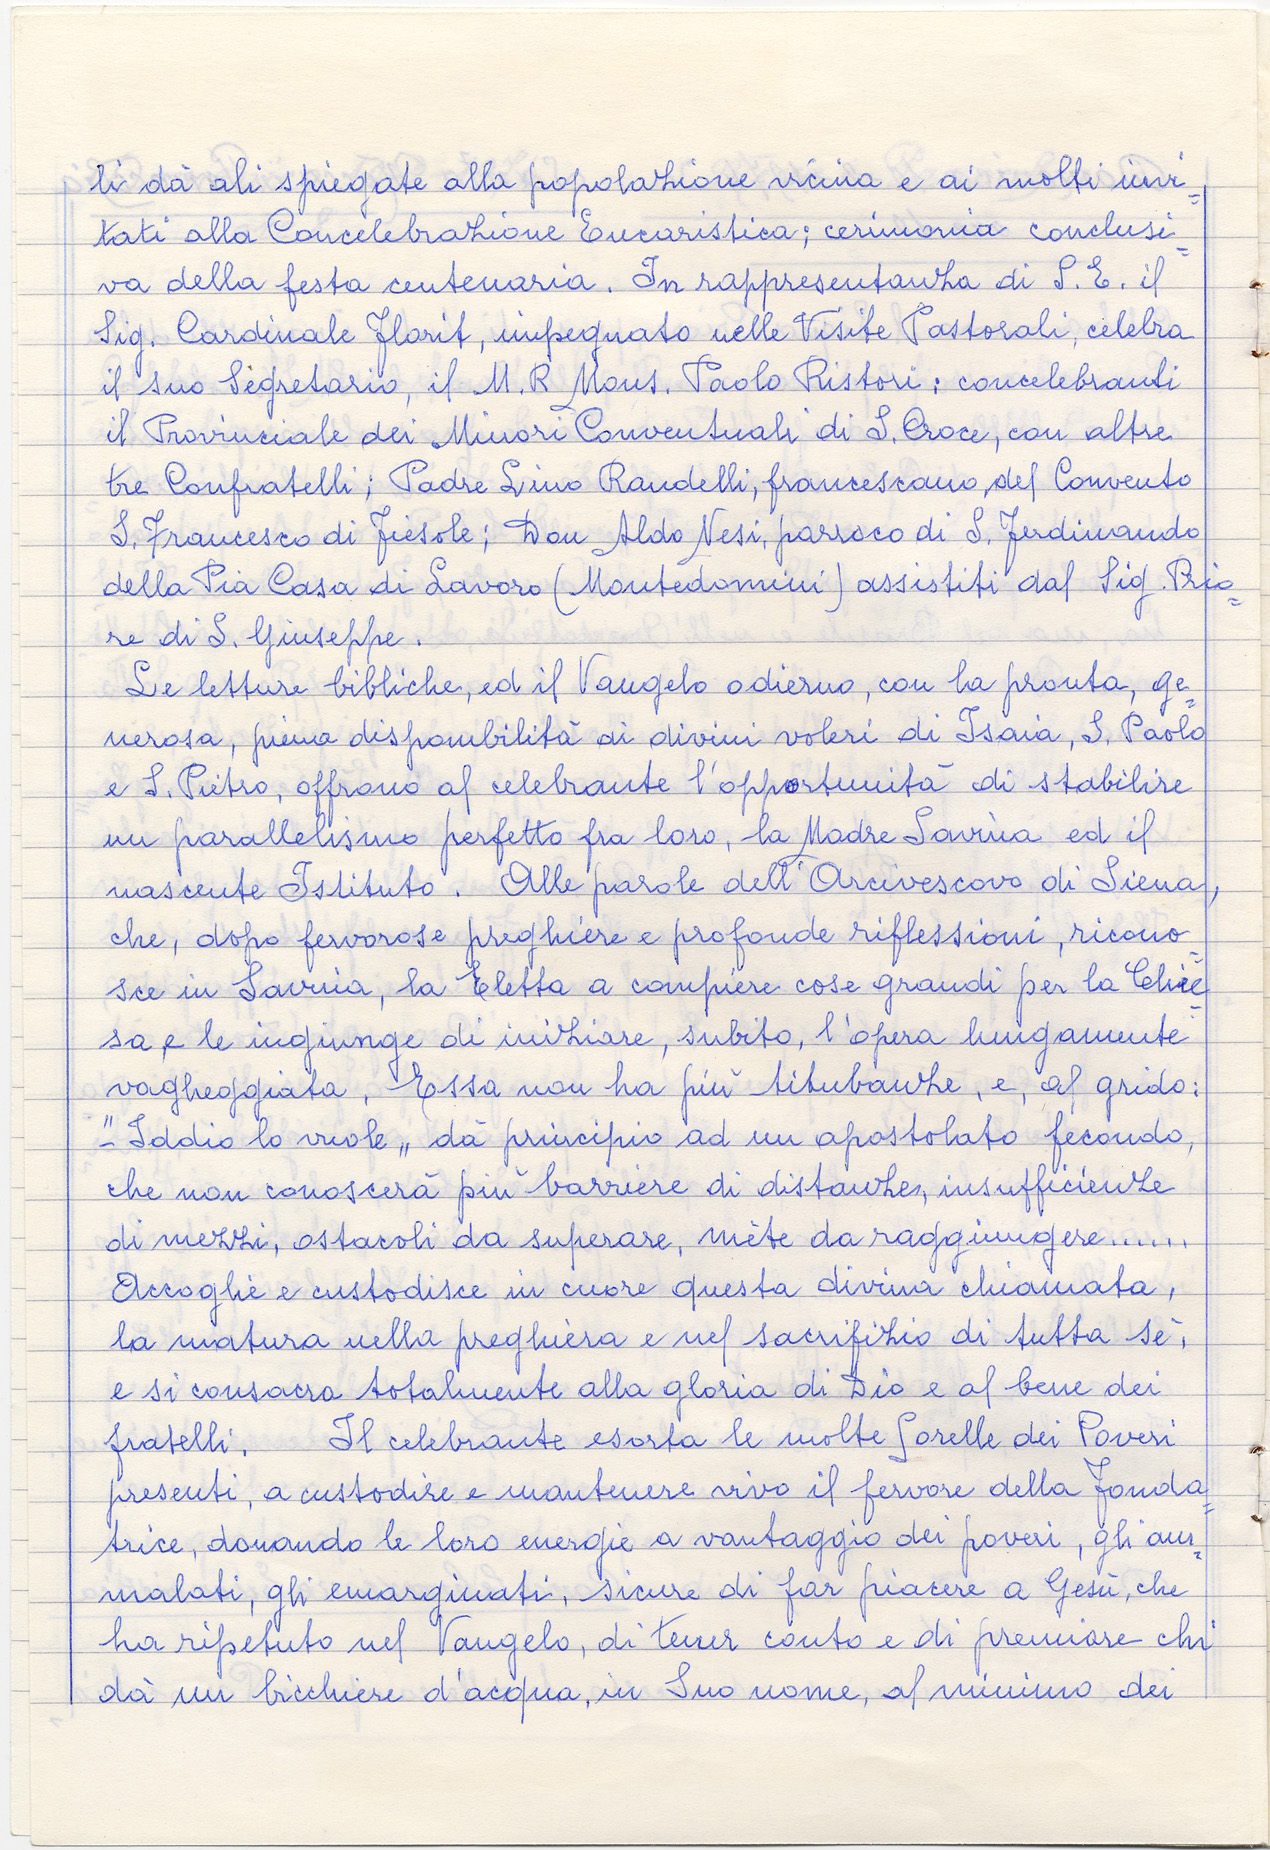 li dà ali spiegate alla popolazione vicina e ai molti invi=
tati alla Concelebrazione Eucaristica; cerimonia conclusi=
va della festa centenaria. In rappresentanza di S. E. il
Sig. Cardinale Florit, impegnato nelle Visite Pastorali, celebra
il suo Segretario, il M. R Mons. Paolo Ristori: concelebranti
il Provinciale dei Minori Conventuali di S. Croce, con altre
tre Confratelli; Padre Lino Randelli, francescano, del Convento
S. Francesco di Fiesole; Don Aldo Nesi, parroco di S. Ferdinando
della Pia Casa di Lavoro (Montedomini) assistiti dal Sig. Prio=
re di S. Giuseppe.
Le letture bibliche, ed il Vangelo odierno, con la pronta, ge=
nerosa, piena disponibilità ai divini voleri di Isaia, S. Paolo
e S. Pietro, offrono al celebrante l'opportunità di stabilire
un parallelismo perfetto fra loro, la Madre Savina ed il
nascente Istituto. Alle parole dell'Arcivescovo di Siena,
che, dopo fervorose preghiere e profonde riflessioni, ricono=
sce in Savina, la Eletta a compiere cose grandi per la Chie=
sa, e le ingiunge di iniziare, subito, l'opera lungamente
vagheggiata, Essa non ha più titubanze, e, al grido:
"- Iddio lo vuole„ dà principio ad un apostolato fecondo,
che non conoscerà più barriere di distanze, insufficienze
di mezzi, ostacoli da superare, mète da raggiungere......
Accoglie e custodisce in cuore questa divina chiamata,
la matura nella preghiera e nel sacrifizio di tutta sè,
e si consacra totalmente alla gloria di Dio e al bene dei
fratelli. Il celebrante esorta le molte Sorelle dei Poveri
presenti, a custodire e mantenere vivo il fervore della Fonda=
trice, donando le loro energie a vantaggio dei poveri, gli am=
malati, gli emarginati, sicure di far piacere a Gesù, che
ha ripetuto nel Vangelo, di tener conto e di premiare chi
dà un bicchiere d'acqua, in Suo nome, al minimo dei